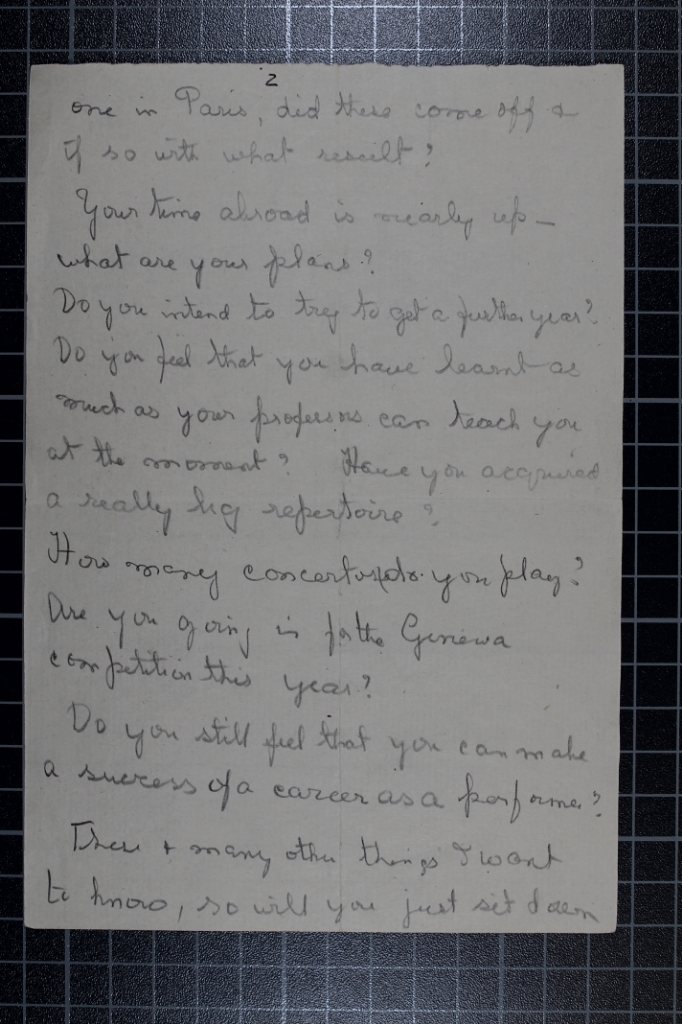 2
one in Paris, did these come off &
if so with what result?
Your time abroad is nearly up —
what are your plans?
Do you intend to try to get a further year?
Do you feel that you have learnt as
much as your professors can teach you
at the moment? Have you acquired
a really big repertoire?
How many concertos do you play?
Are you going in for the Geneva
competition this year?
Do you still feel that you can make
a success of a career as a performer?
These & many other things I want
to know, so will you just sit down